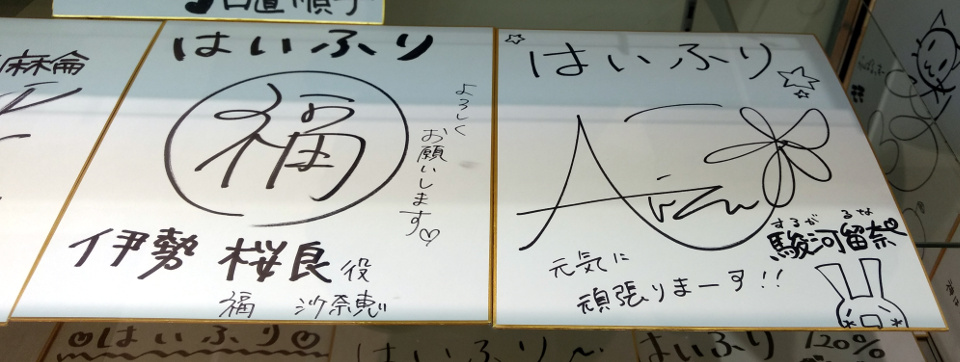 日置順子
麻侖
はいふり
福
よろしく
お願いします♡
伊勢 桜良役
福 沙奈恵
はいふり
するが るな
駿河留奈
元気に
頑張りまーす!!
はいふり
はいふり〜
はいふり
120%